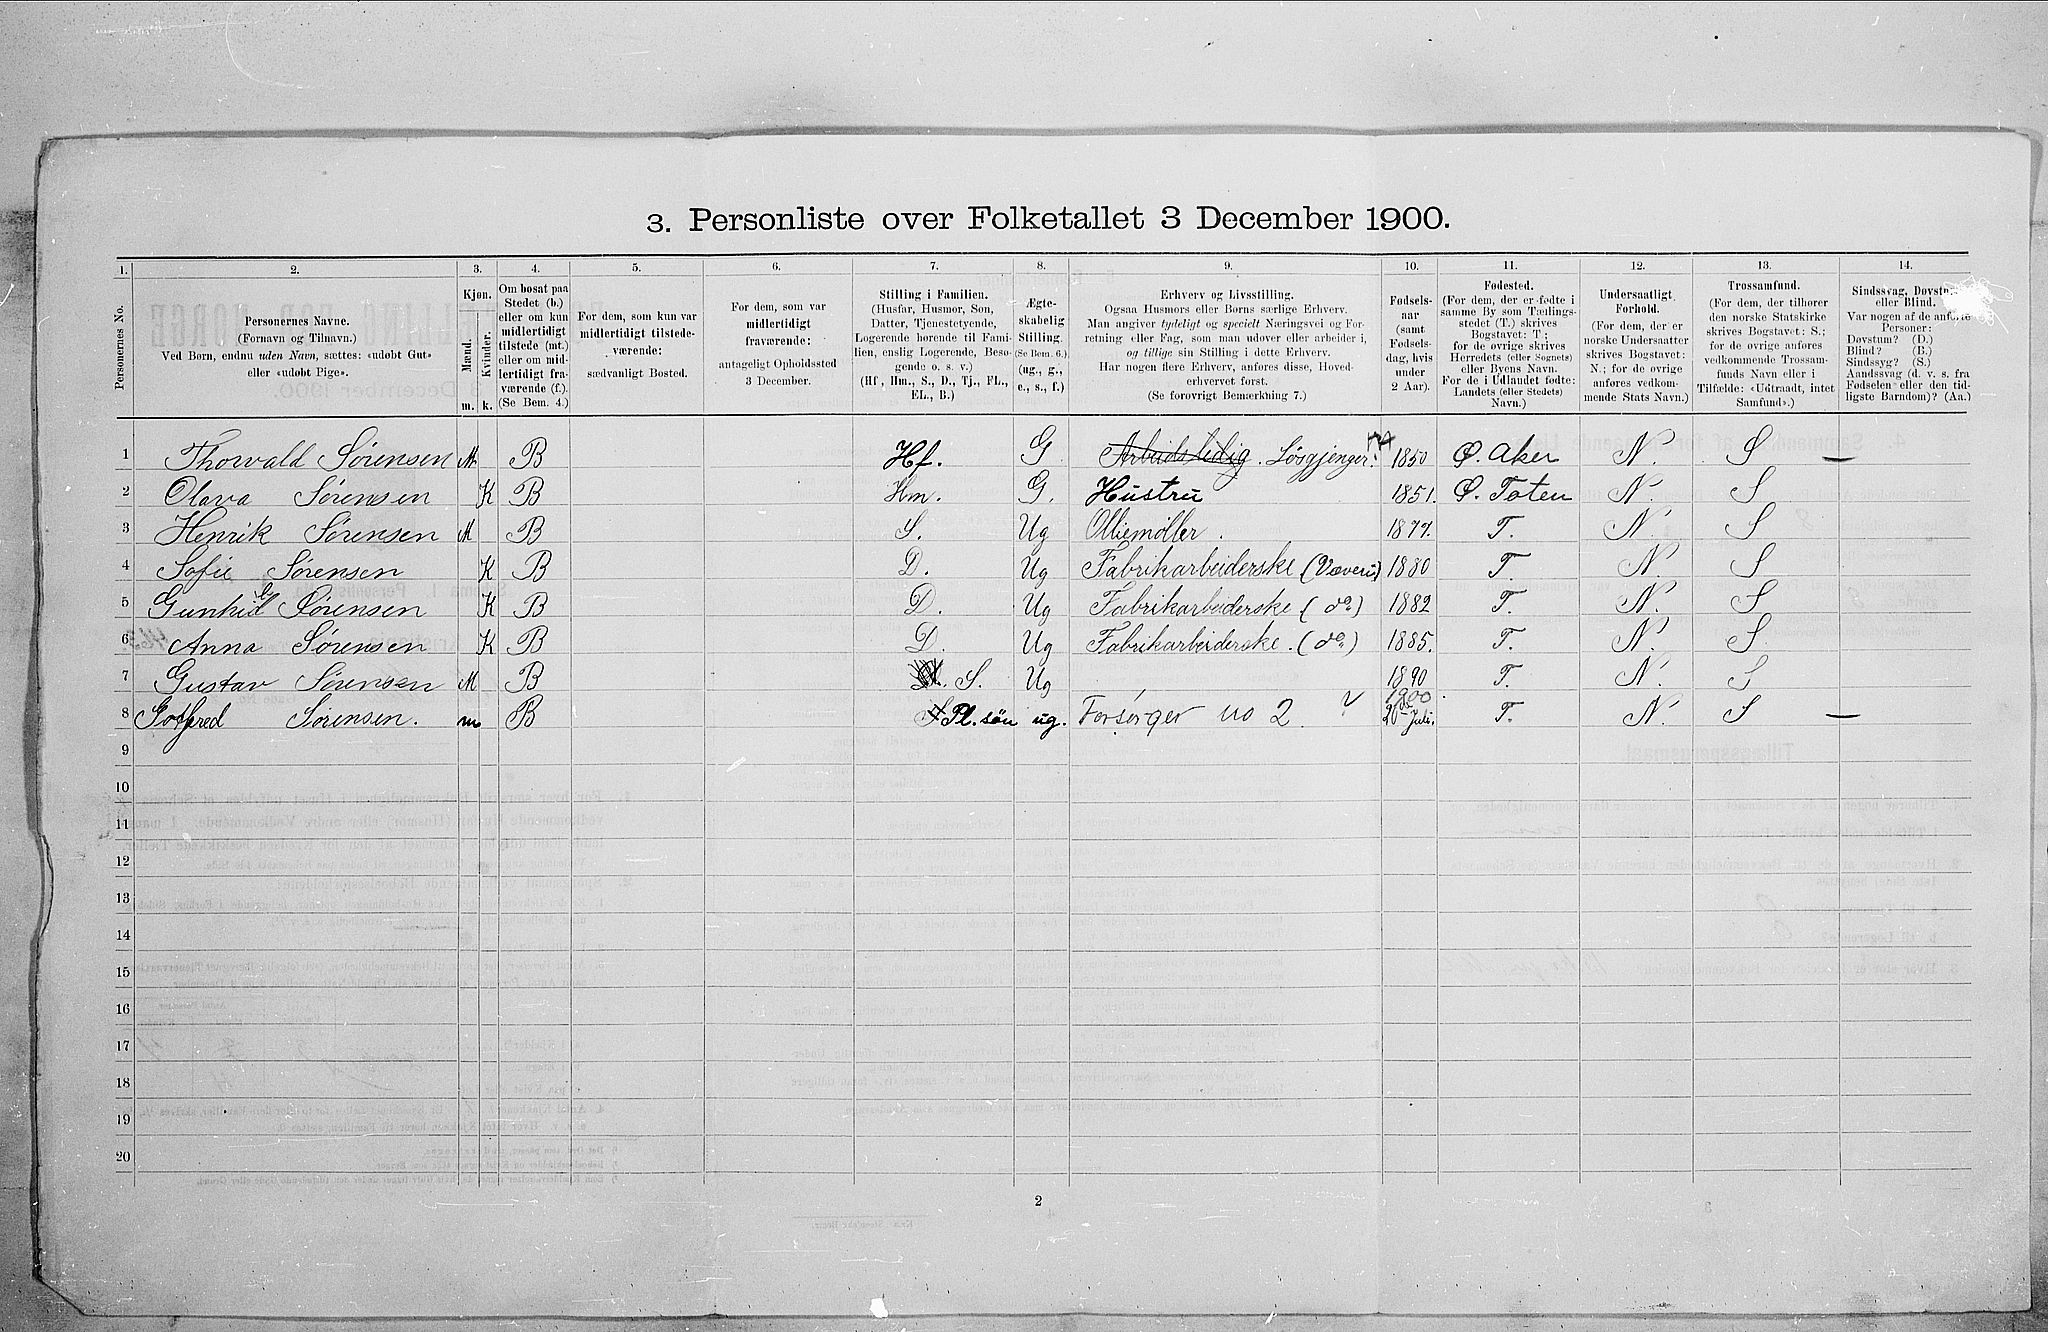 3. Personliste over Folketallet 3 December 1900.
1. 2. 3. 4. 5. 6. 7. 8. 9. 10. 11. 12. 13. 14.
Personernes No.
Personernes Navne.
(Fornavn og Tilnavn.)
Ved Børn, endnu uden Navn, sættes: «udøbt Gut»
eller «udøbt Pige».
Kjøn.
Mænd.
Kvinder.
m. k.
Om bosat paa
Stedet (b.)
eller om kun
midlertidigt
tilstede (mt.)
eller om mid-
lertidigt fra-
værende (f.).
(Se Bem. 4.)
For dem, som kun var
midlertidigt tilstede-
værende:
sædvanligt Bosted.
For dem, som var
midlertidigt
fraværende:
antageligt Opholdssted
3 December.
Stilling i Familien.
(Husfar, Husmor, Søn,
Datter, Tjenestetyende,
Logerende hørende til Fami-
lien, enslig Logerende, Beso-
gende o. s. v.)
(Hf., Hm., S., D., Tj., FL.,
EL., B.)
Ægte-
skabelig
Stilling.
(Se Bem. 6.)
(ug., g.,
e., s., f.)
Erhverv og Livsstilling.
Ogsaa Husmors eller Børns særlige Erhverv.
Man angiver tydeligt og specielt Næringsvei og For-
retning eller Fag, som man udover eller arbeider i,
og tillige sin Stilling i dette Erhverv.
Har nogen flere Erhverv, anføres disse, Hoved-
erhvervet først.
(Se forøvrigt Bemærkning 7.)
Fødsels-
aar
(samt
Fødsels-
dag, hvis
under
2 Aar).
Fødested.
(For dem, der er fødte i
samme By som Tællings-
stedet (T.) skrives
Bogstavet: T;
for de øvrige skrives
Herredets (eller Sognets)
eller Byens Navn.
For de i Udlandet fødte:
Landets (eller Stedets)
Navn.)
Undersaatligt
Forhold.
(For dem, der er
norske Undersaatter
skrives Bogstavet:
N.; for de øvrige
anføres vedkom-
mende Stats Navn.)
Trossamfund.
(For dem, der tilhører
den norske Statskirke
skrives Bogstavet: S.;
for de øvrige anføres
vedkommende Trossam-
funds Navn eller i
Tilfælde: «Udtraadt, intet
Samfund».)
Sindssvag, Døvstum
eller Blind.
Var nogen af de anførte
Personer:
Døvstum? (D.)
Blind? (B.)
Sindssyg? (S.)
Aandssvag (d. v. s. fra
Fødselen eller den tid-
ligste Barndom)? (Aa.)
1 Thorvald Sørensen M. B Hf. G Arbeidsledig. Løsgjenger. 1850 Ø. Aker N. S —
2 Olava Sørensen K B Hm. G. Hustru 1851. Ø. Toten N. S
3 Henrik Sørensen M B S. Ug Olliemøller. 1877. T. N. S
4 Sofie Sørensen K B D. Ug Fabrikarbeiderske (Væveri) 1880 T. N. S
5 Gunhild Sørensen K B D. Ug Fabrikarbeiderske (do) 1882 T. N. S
6 Anna Sørensen K B D. Ug Fabrikarbeiderske. (do) 1885. T. N. S.
7 Gustav Sørensen M B S. Ug 1890 T. N. S
8 Gotfred Sørensen. m B Pl. søn ug. Forsørger no 2 ? 1900 20de Juli. T. N. S —
9
10
11
12
13
14
15
16
17
18
19
20
2